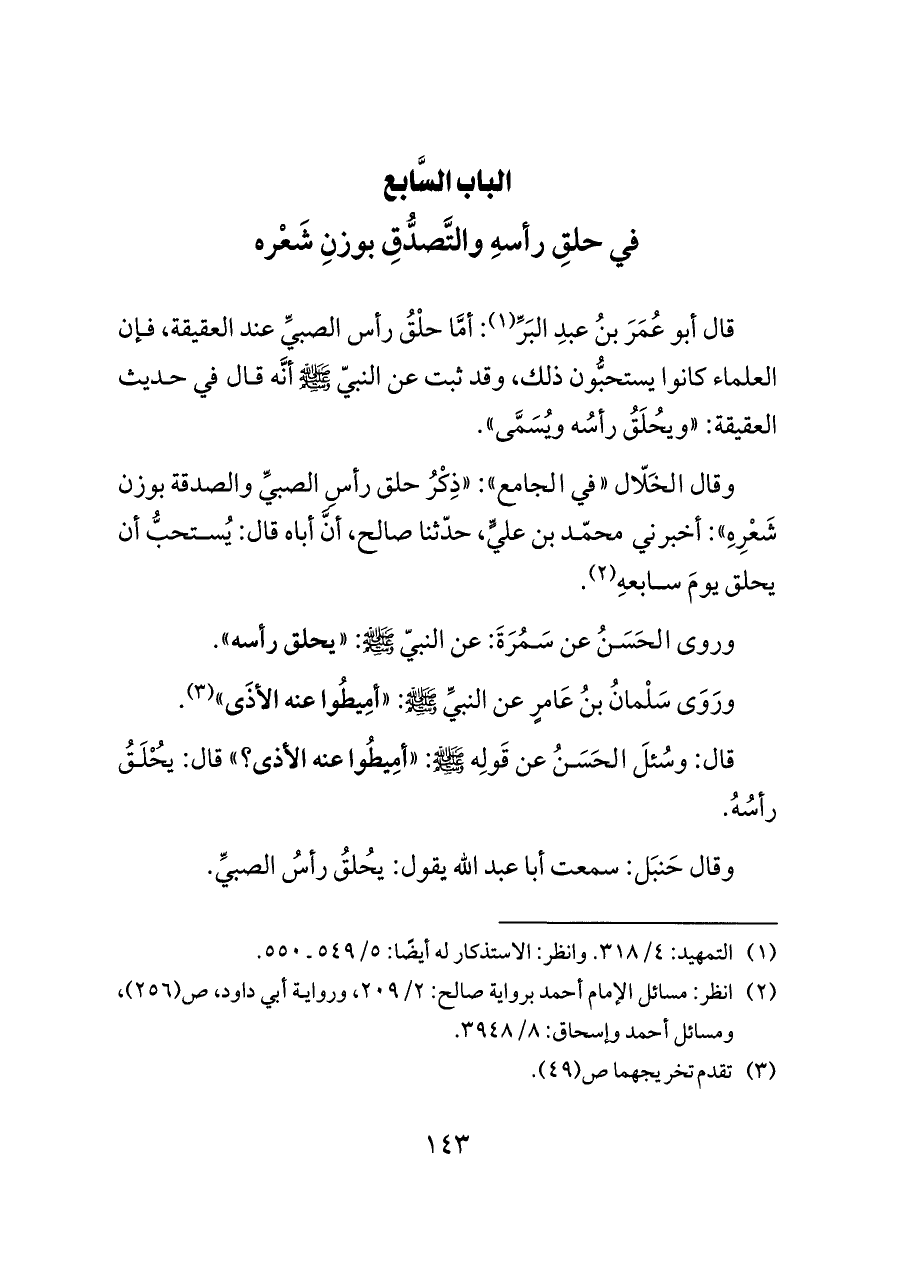 الباب السَّابع
في حلقِ رأسهِ والتَّصدُّقِ بوزنِ شَعْره
قال أبو عُمَرَ بنُ عبدِ البَرِّ(١): أمَّا حلْقُ رأس الصبيِّ عند العقيقة، فإن
العلماء كانوا يستحبُّون ذلك، وقد ثبت عن النبيّ ﷺ أنَّه قال في حديث
العقيقة: «ويحُلَقُ رأسُه ويُسَمَّى».
وقال الخَلّال «في الجامع»: «ذِكْرُ حلق رأسِ الصبيِّ والصدقة بوزن
شَعْرِهِ»: أخبرني محمّد بن عليٍّ، حدّثنا صالح، أنَّ أباه قال: يُستحبُّ أن
يحلق يومَ سابعهِ(٢).
وروى الحَسَنُ عن سَمُرَةَ: عن النبيّ ﷺ: «يحلق رأسه».
ورَوَى سَلْمانُ بنُ عَامرٍ عن النبيِّ ﷺ: «أمِيطُوا عنه الأذَى»(٣).
قال: وسُئلَ الحَسَنُ عن قَولِه ﷺ: «أمِيطُوا عنه الأذى؟» قال: يحُْلَقُ
رأسُهُ.
وقال حَنبَل: سمعت أبا عبد الله يقول: يحُلقُ رأسُ الصبيِّ.
(١) التمهيد: ٤/ ٣١٨. وانظر: الاستذكار له أيضًا: ٥/ ٥٤٩ ـ ٥٥٠.
(٢) انظر: مسائل الإمام أحمد برواية صالح: ٢/ ٢٠٩، ورواية أبي داود، ص(٢٥٦)،
ومسائل أحمد وإسحاق: ٨/ ٣٩٤٨.
(٣) تقدم تخريجهما ص(٤٩).
١٤٣